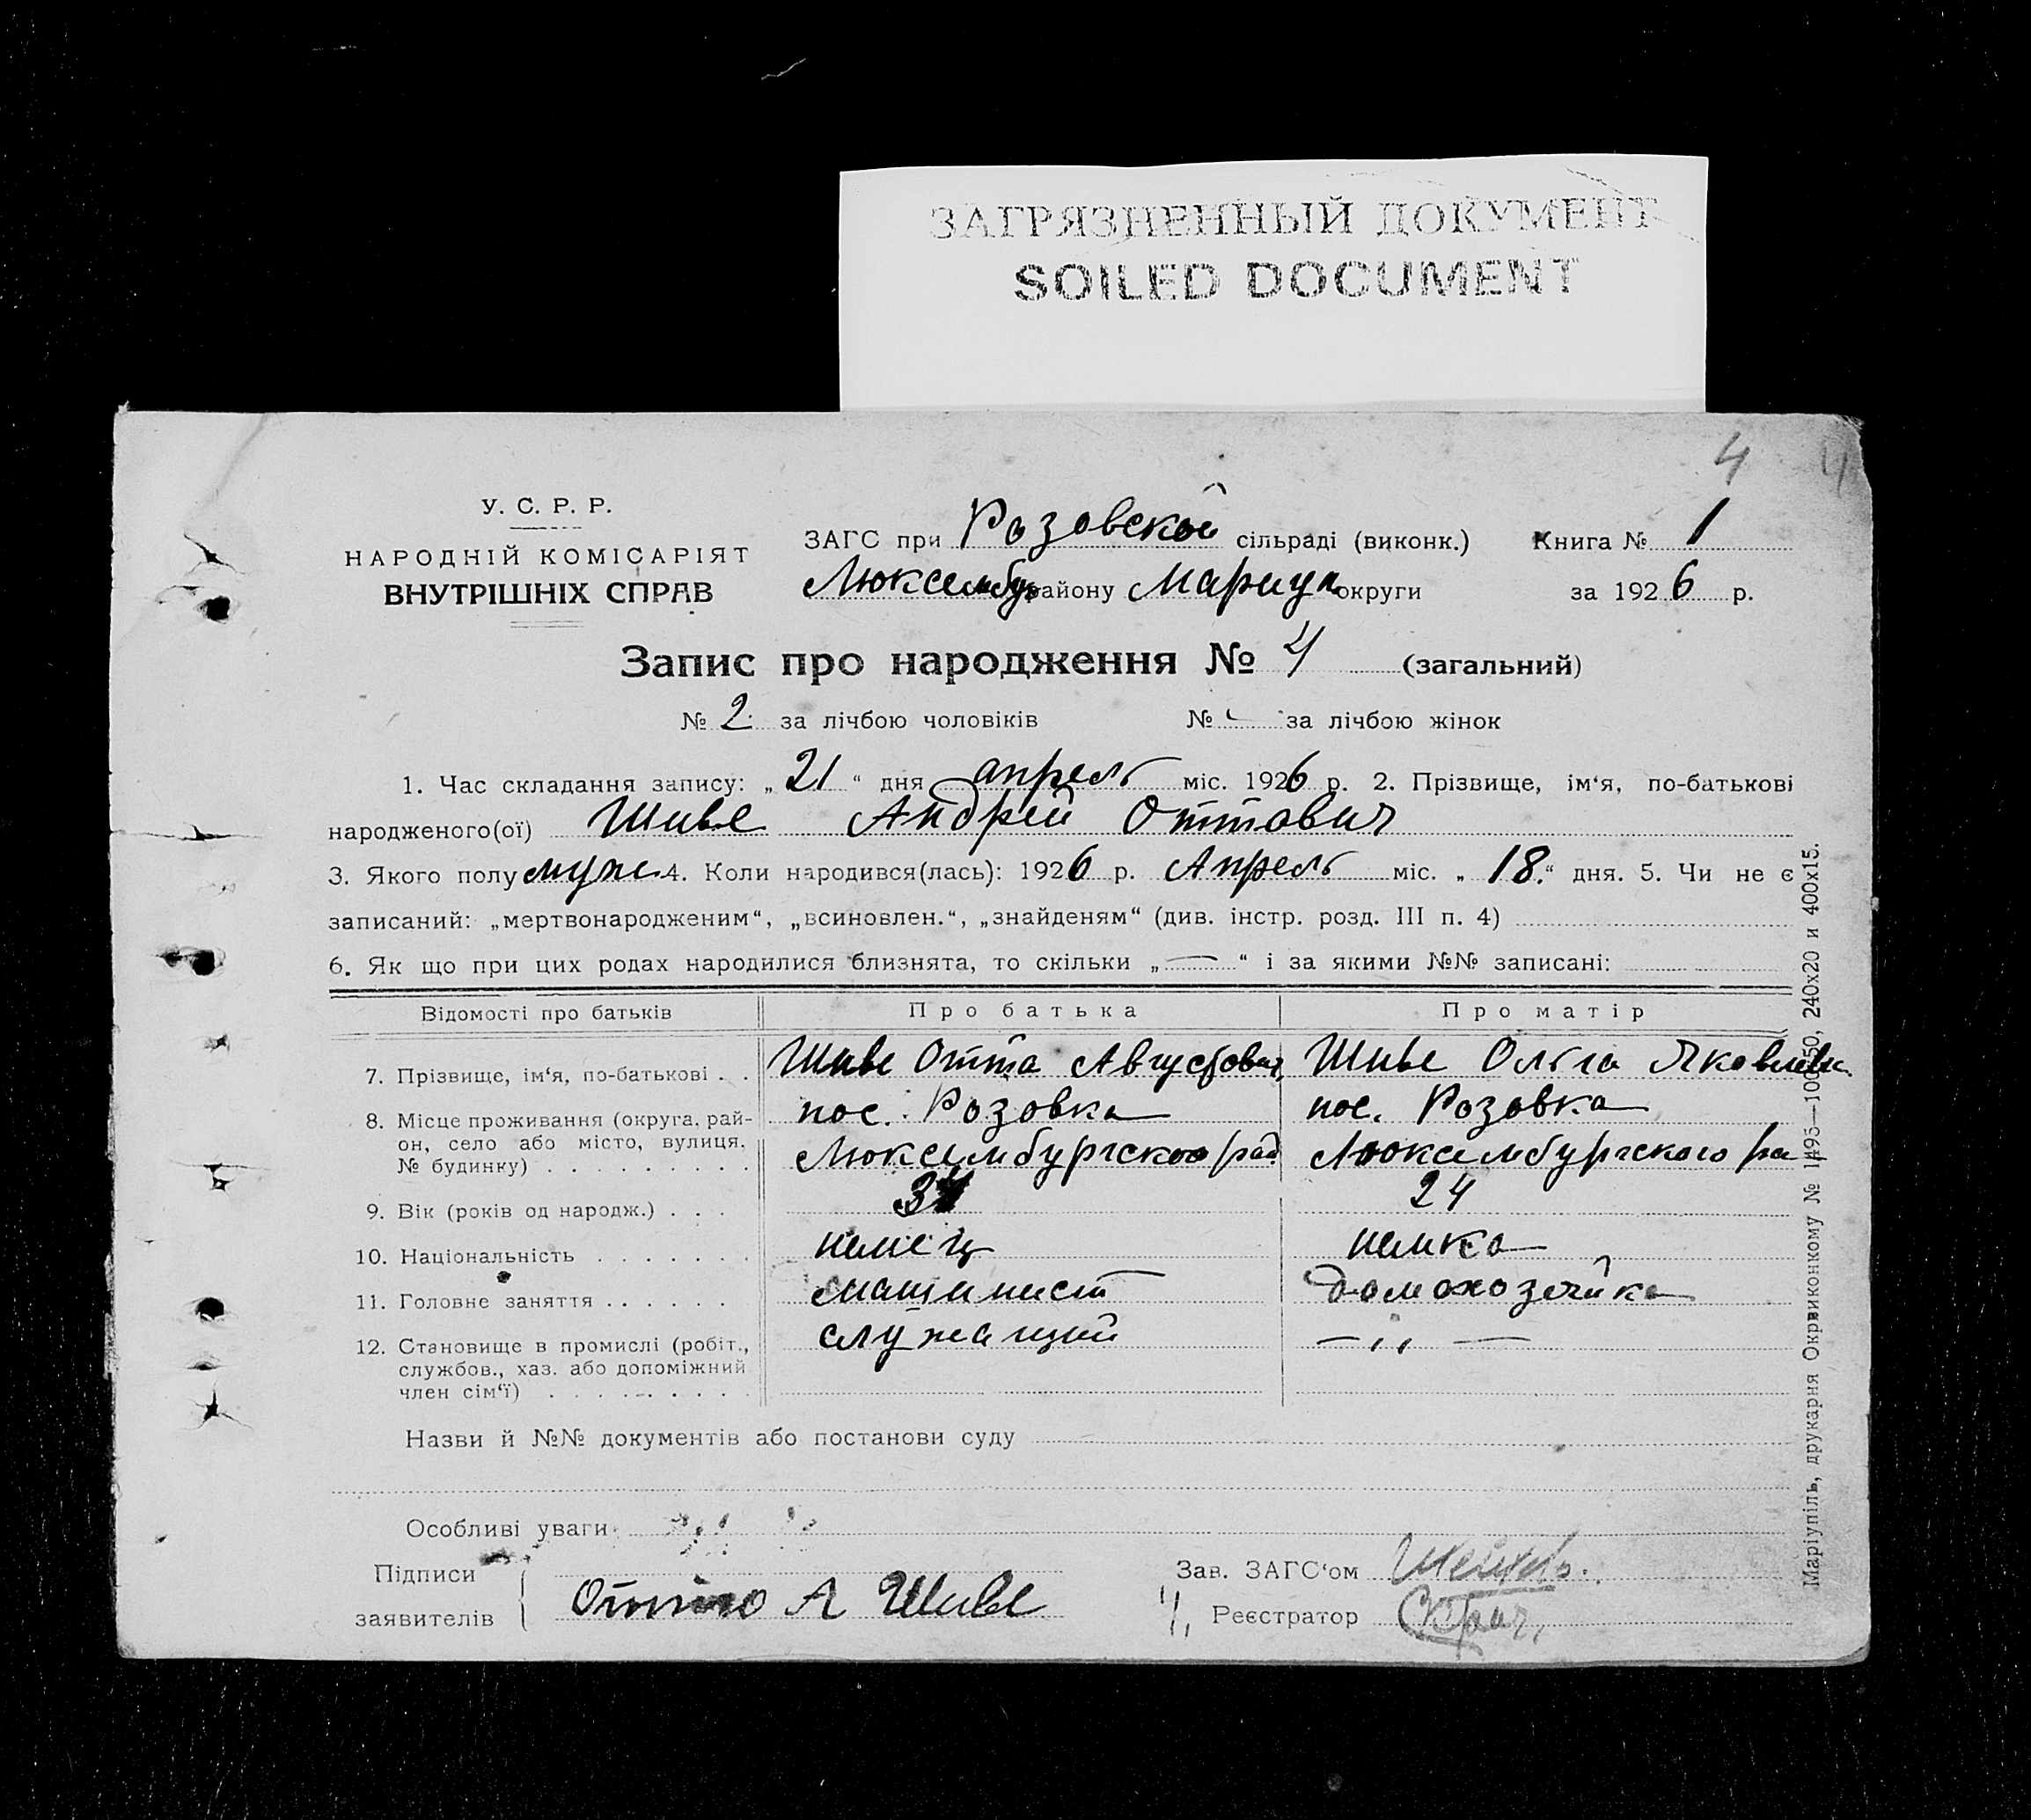 ЗАГРЯЗНЕННЫЙ ДОКУМЕНТ
SOILED DOCUMENT
4 4
У. С. Р. Р.
НАРОДНІЙ КОМІСАРІЯТ
ВНУТРІШНІХ СПРАВ
ЗАГС при Розовской сільраді (виконк.) Книга № 1
Люксембур району Мариуп округи за 1926 р.
Запис про народження № 4 (загальний)
№ 2 за лічбою чоловіків № - за лічбою жінок
1. Час складання запису: „21“ дня апрель міс. 1926 р. 2. Прізвище, ім‘я, по-батькові
народженого(ої) Шиве Андрей Оттович
3. Якого полу муж. 4. Коли народився(лась): 1926 р. Апрель міс. „18.“ дня. 5. Чи не є
записаний: „мертвонародженим“, „всиновлен.“, „знайденям“ (див. інстр. розд. III п. 4)
6. Як що при цих родах народилися близнята, то скільки „—“ і за якими №№ записані:
Відомості про батьків Про батька Про матір
7. Прізвище, ім‘я, по-батькові . . Шиве Отта Августович Шиве Ольга Яковлевна
8. Місце проживання (округа, рай- пос. Розовка пос. Розовка
он, село або місто, вулиця, Люксембургского рай Люксембургского ра
№ будинку) . . . . . . . . .
9. Вік (років од народж.) . . . 24
10. Національність . . . . . . . немец немка
11. Головне заняття . . . . . . машинист домохозяйка
12. Становище в промислі (робіт., служащий — ,, —
службов., хаз. або допоміжний
член сім‘ї) . . . . . . . . .
Назви й №№ документів або постанови суду
Особливі уваги
Підписи
заявителів Отто А Шиве
Зав. ЗАГС‘ом
Реєстратор
Маріупіль, друкарня Окрвиконкому № 1495—100×50, 240x20 и 400x15.